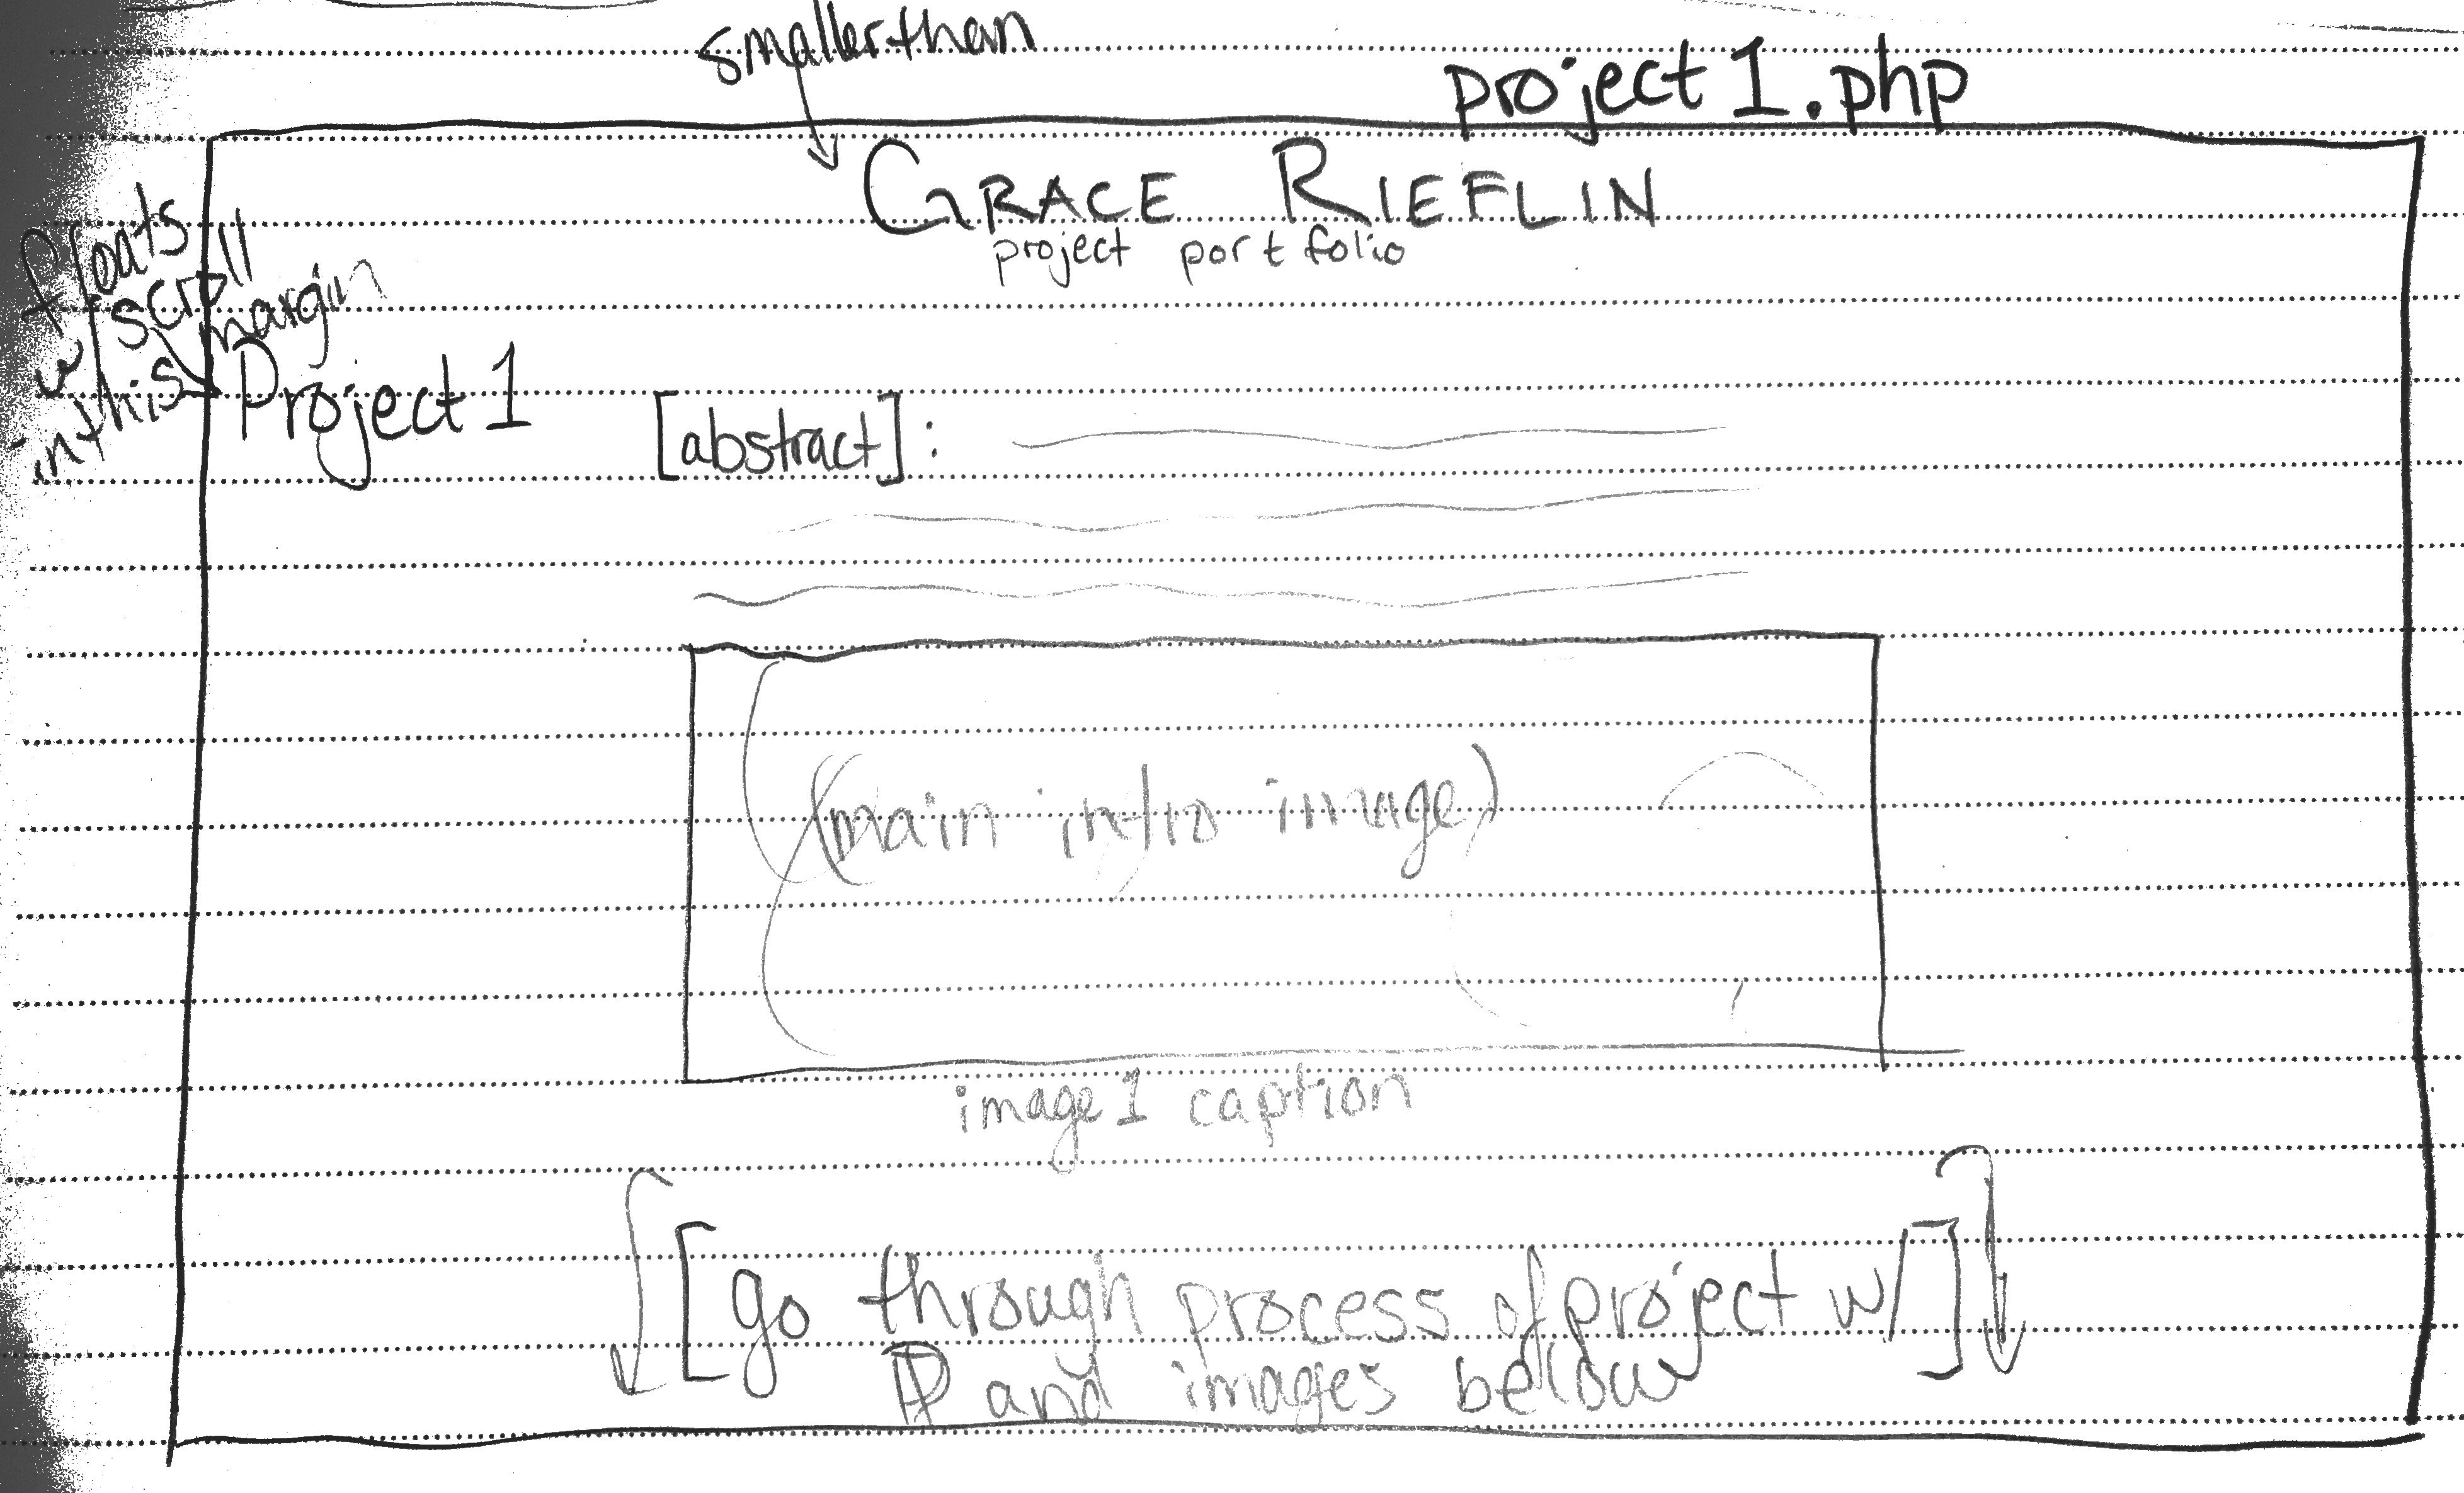 smaller than
project1.php
GRACE RIEFLIN
project portfolio
floats
w/ scroll
in this margin
Project 1
[abstract]:
(main intro image)
image 1 caption
[go through process of project w/]
and images below